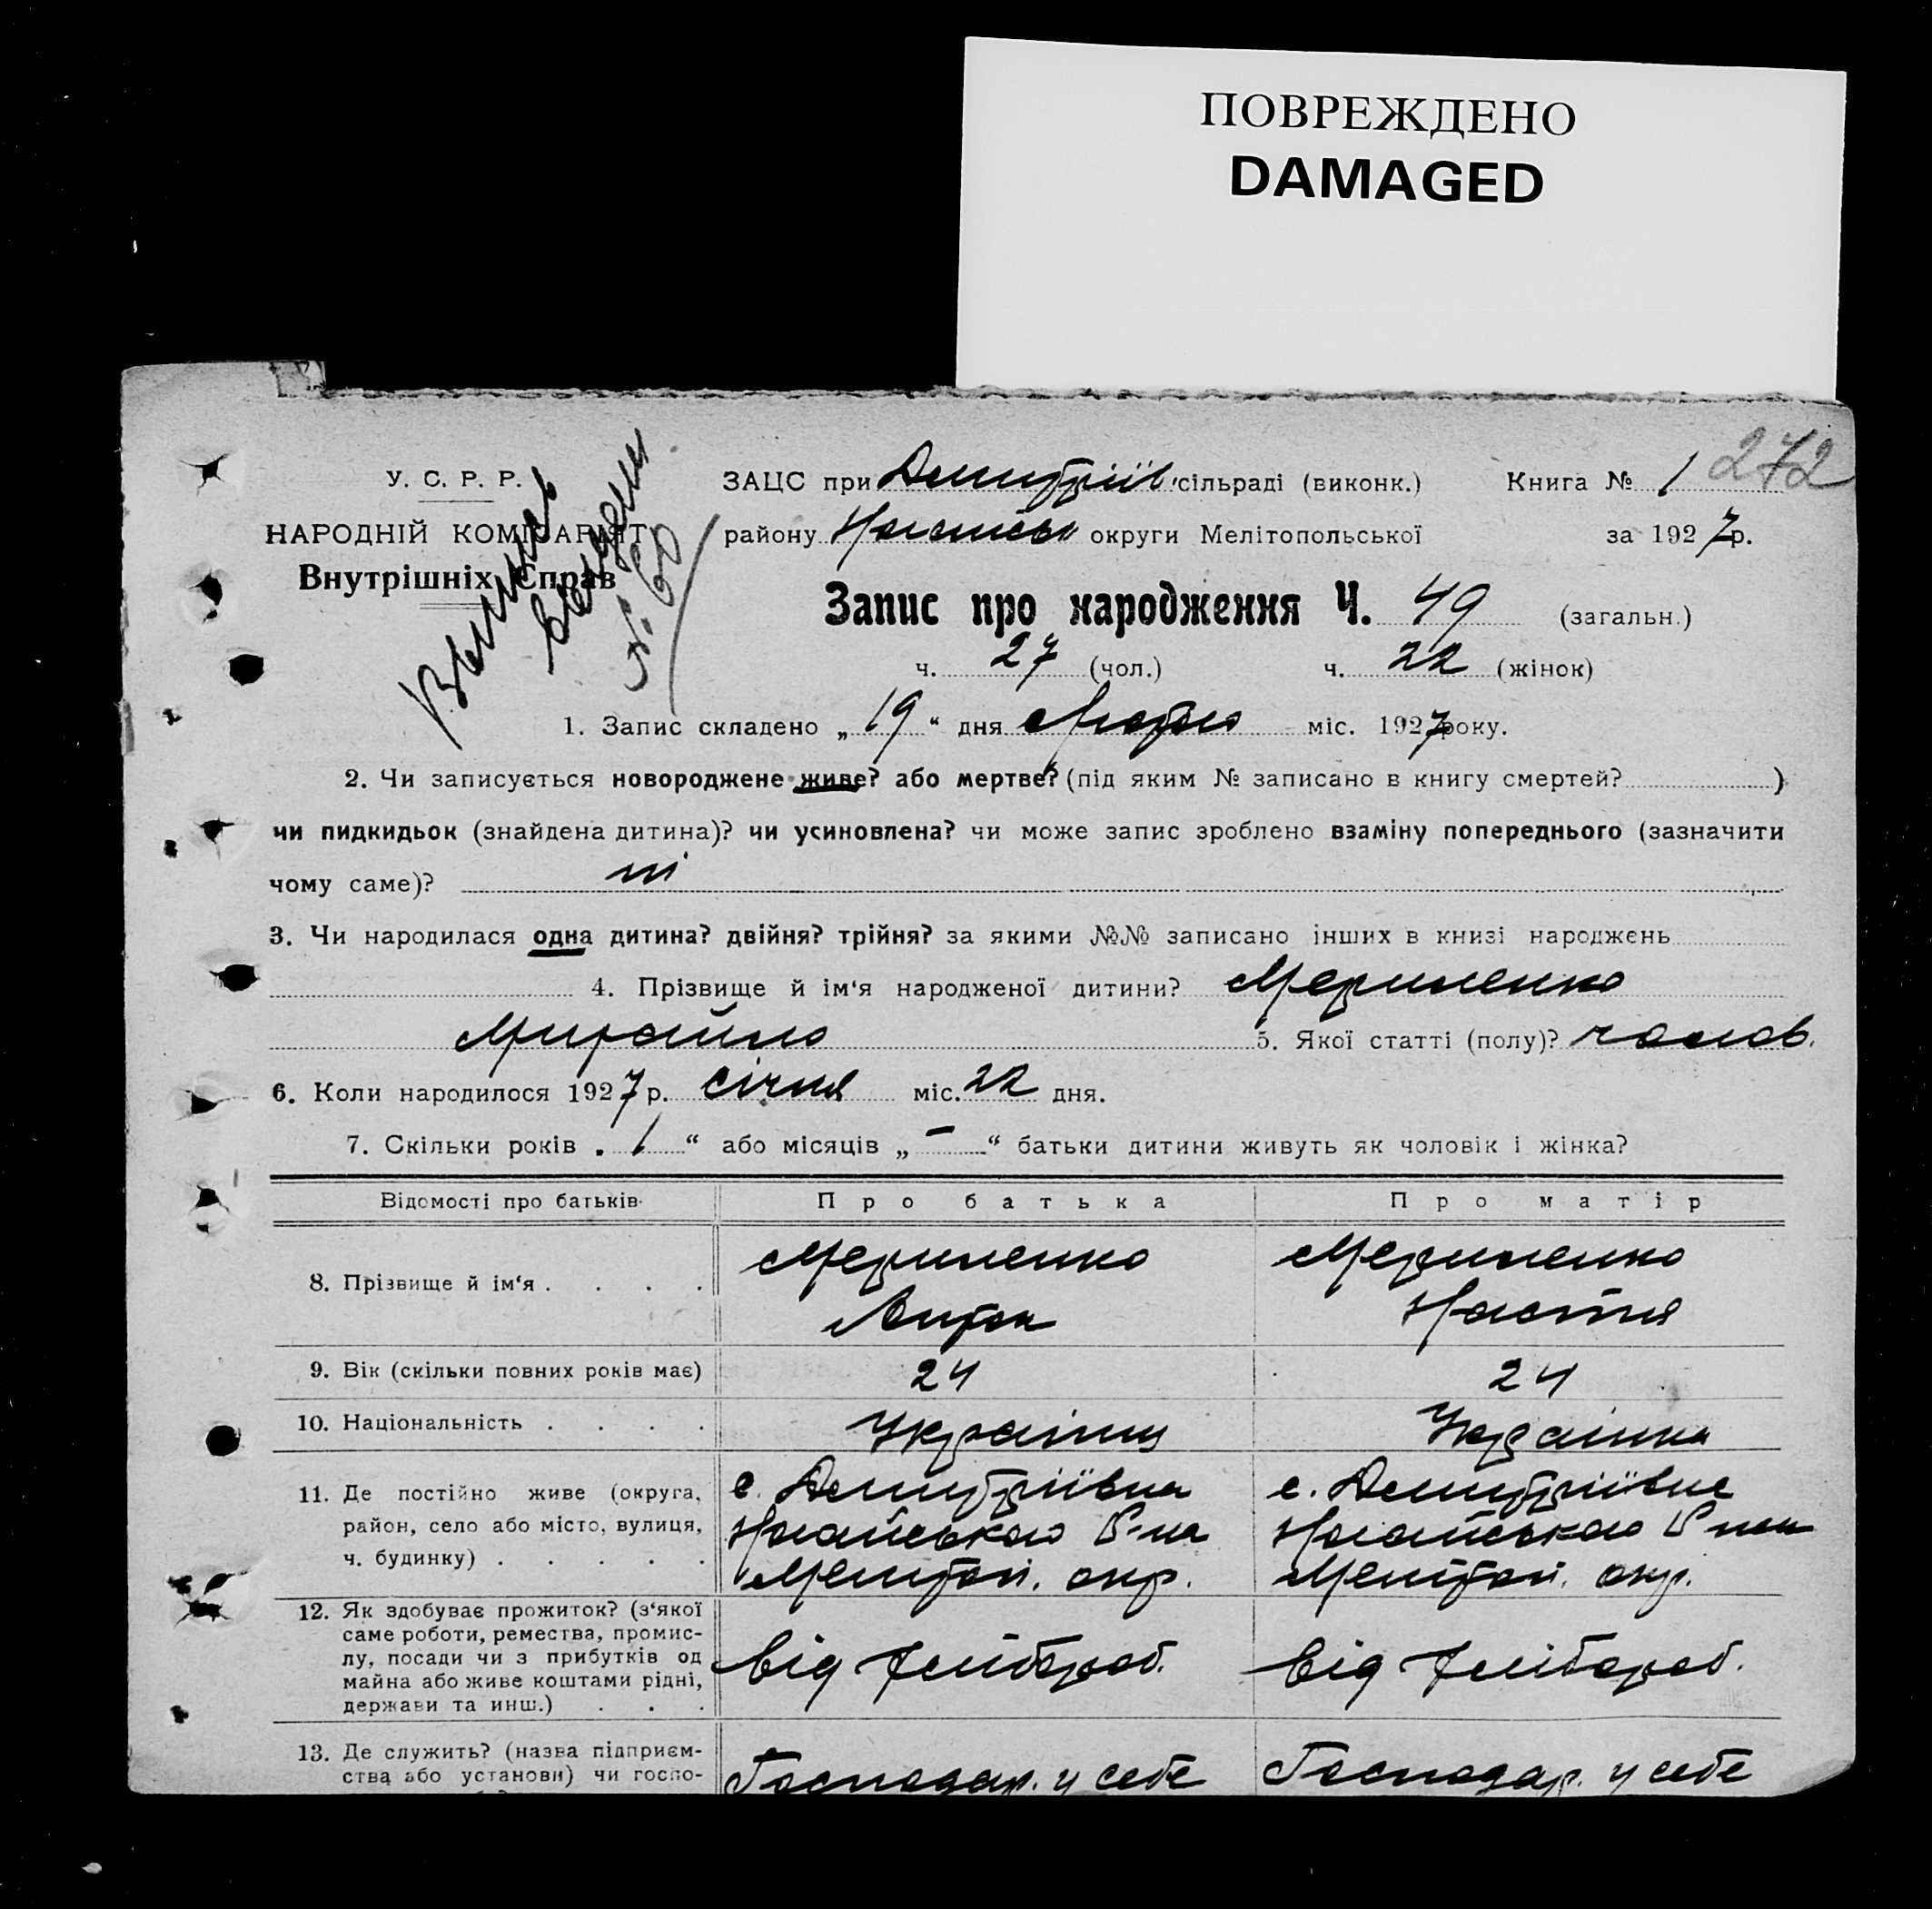 ПОВРЕЖДЕНО
DAMAGED
272
У. С. Р. Р.
НАРОДНІЙ КОМІСАРІЯТ
Внутрішніх Справ
№ 60
ЗАЦС при Дмитріїв. сільраді (виконк.) Книга № 1
району Ногайськ округи Мелітопольської за 1927 р.
Запис про народження Ч. 49 (загальн.)
ч. 27 (чол.) ч. 22 (жінок)
1. Запис складено „19“ дня Лютого міс. 1927 року.
2. Чи записується новороджене живе? або мертве? (під яким № записано в книгу смертей? )
чи пидкидьок (знайдена дитина)? чи усиновлена? чи може запис зроблено взаміну попереднього (зазначити
чому саме)? ні
3. Чи народилася одна дитина? двійня? трійня? за якими №№ записано інших в книзі народжень
4. Прізвище й ім‘я народженої дитини? Мериленко
Михайло 5. Якої статті (полу)? чолов.
6. Коли народилося 1927 р. січня міс. 22 дня.
7. Скільки років „1“ або місяців „–“ батьки дитини живуть як чоловік і жінка?
Відомості про батьків Про батька Про матір
8. Прізвище й ім‘я . . . . Мериленко Мериленко
Антон Настя
9. Вік (скільки повних років має) 24 24
10. Національність . . . . Українц Українка
11. Де постійно живе (округа, с. Дмитріївка с. Дмитріївка
район, село або місто, вулиця, Ногайського Р-на Ногайського Р-на
ч. будинку) . . . . . Меліտоп. окр. Мелітоп. окр.
12. Як здобуває прожиток? (з‘якої
саме роботи, ремества, промис-
лу, посади чи з прибутків од від хлібороб. від хлібороб.
майна або живе коштами рідні,
держави та инш.) . . .
13. Де служить? (назва підприєм-
ства або установи) чи госпо- Господар. у себе Господар. у себе